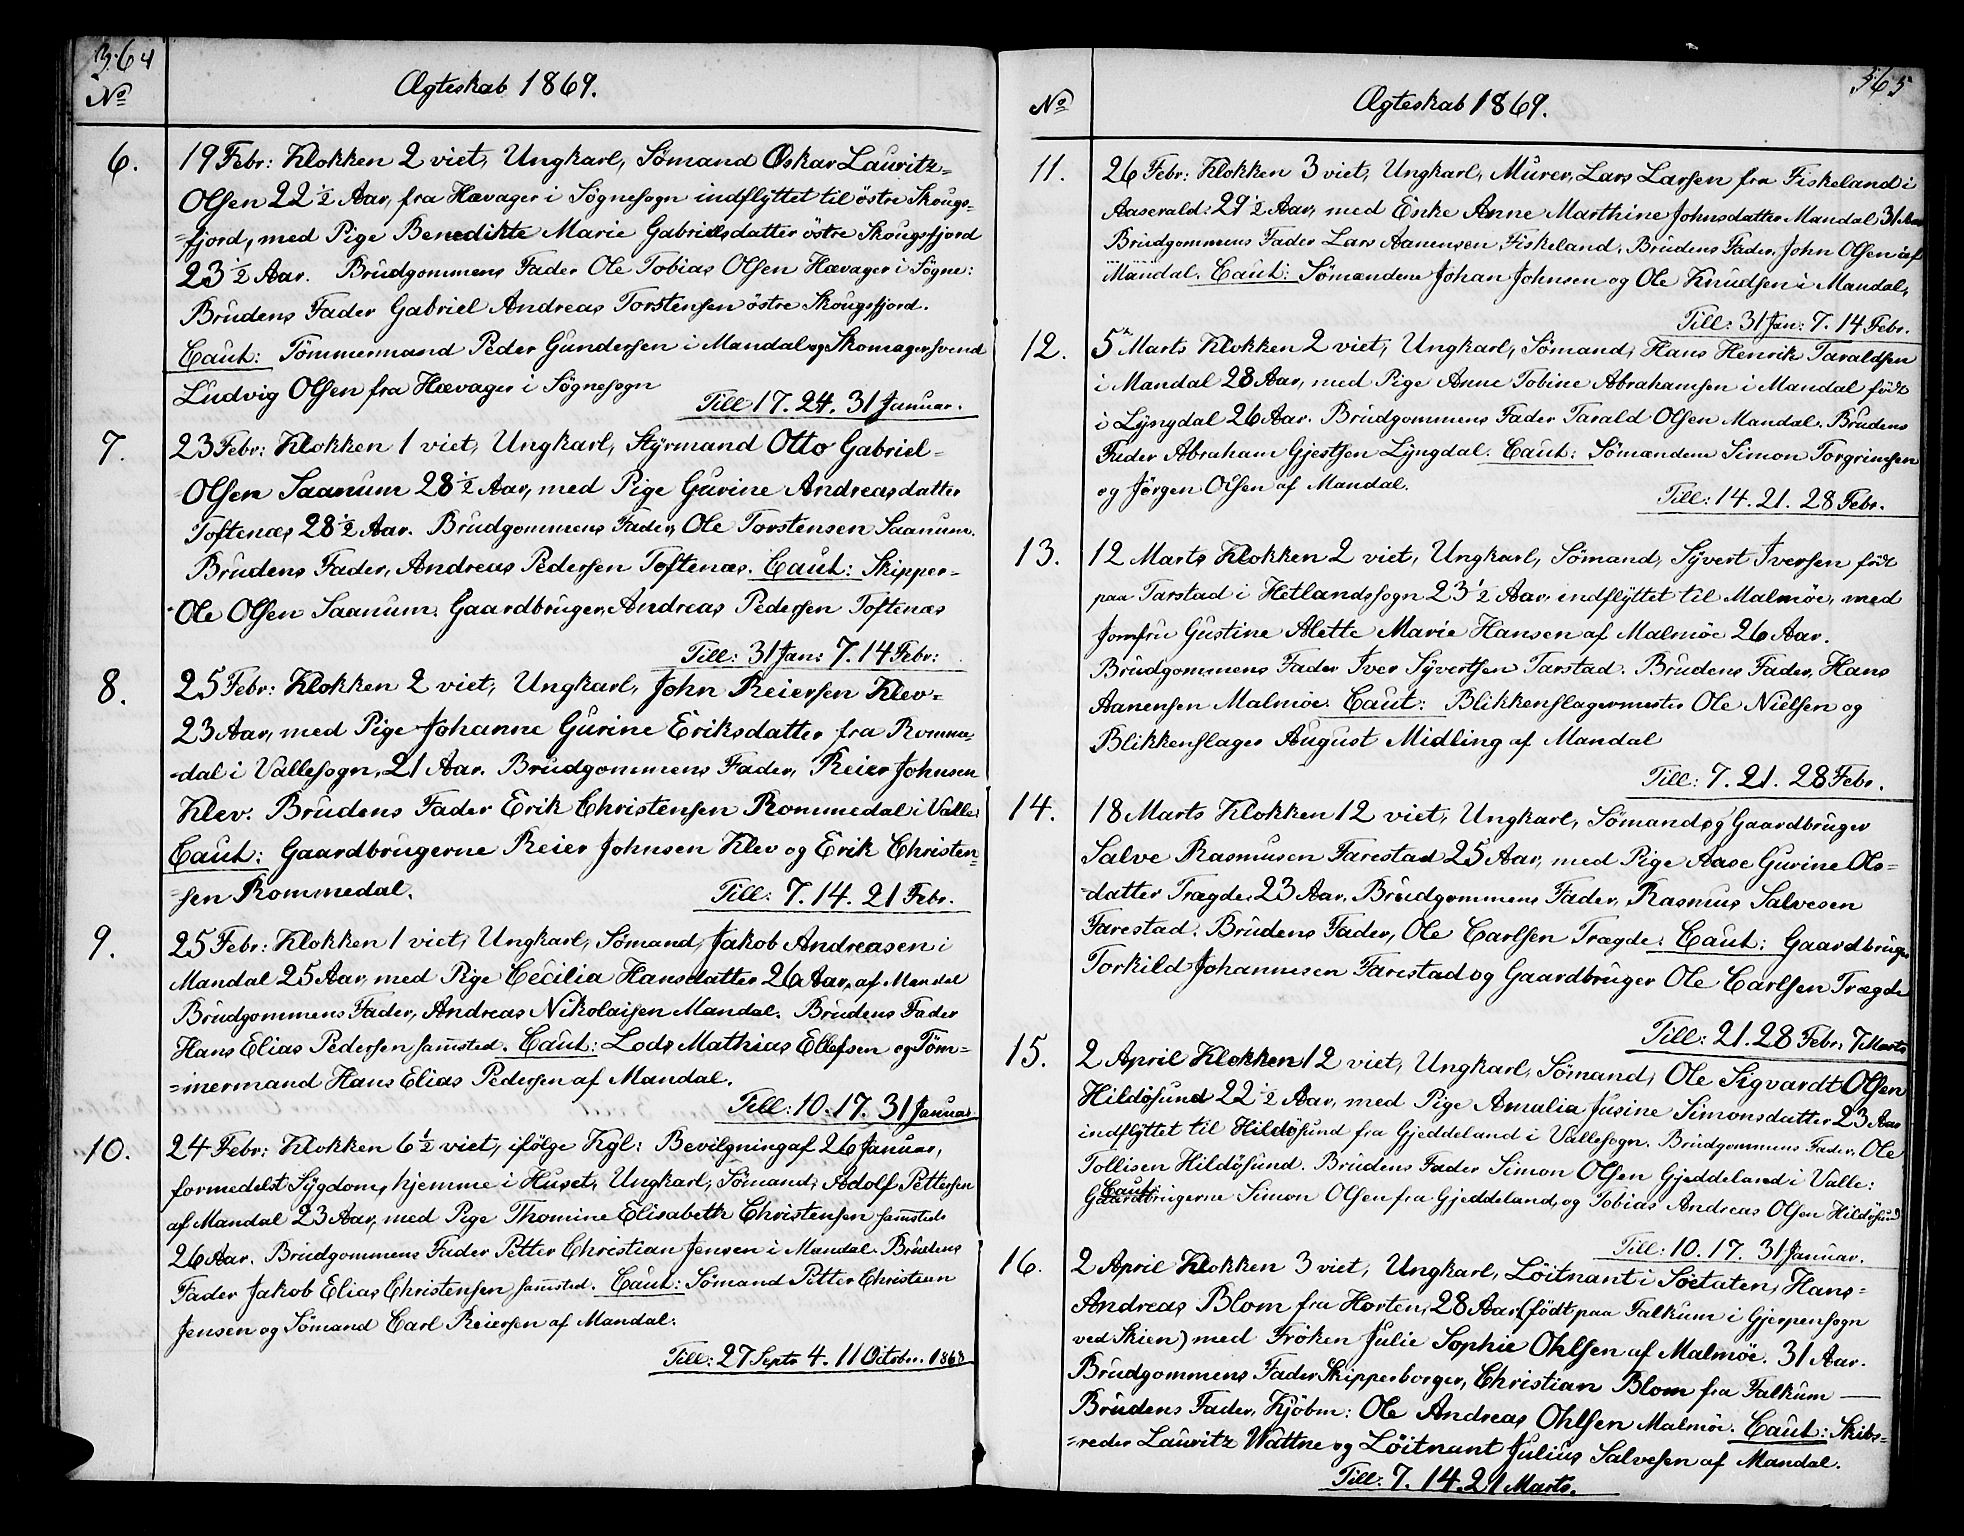 364
No
Ægteskab 1869.
6.
19 Febr: Klokken 2 viet, Ungkarl, Sömand Oskar Lauritz-
Olsen 22 1/2 Aar, fra Hævager i Sögnesogn indflyttet til östre Skougs-
fjord, med Pige Benedikte Marie Gabrielsdatter östre Skougsfjord
23 1/2 Aar. Brudgommens Fader Ole Tobias Olsen Hævager i Sögne:
Brudens Fader Gabriel Andreas Torstensen östre Skougsfjord.
Caut: Tömmermand Peder Gundersen i Mandal og Skomagersvend
Ludvig Olsen fra Hævager i Sögnesogn
Till 17. 24. 31 Januar.
7.
23 Febr: Klokken 1 viet, Ungkarl, Styrmand Otto Gabriel-
Olsen Saanum 28 1/2 Aar, med Pige Gurine Andreasdatter
Toftenæs 28 1/2 Aar. Brudgommens Fader, Ole Torstensen Saanum.
Brudens Fader, Andreas Pedersen Toftenæs. Caut: Skipper-
Ole Olsen Saanum. Gaardbruger, Andreas Pedersen Toftenæs
Till: 31 Jan: 7. 14 Febr:
8.
25 Febr: Klokken 2 viet, Ungkarl, John Reiersen Klev-
23 Aar, med Pige Johanne Gurine Eriksdatter fra Romme-
dal i Vallesogn, 21 Aar. Brudgommens Fader, Reier Johnsen
Klev. Brudens Fader Erik Christensen Rommedal i Valle:
Caut: Gaardbrugerne Reier Johnsen Klev og Erik Christen-
sen Rommedal.
Till: 7. 14. 21 Febr.
9.
25 Febr: Klokken 1 viet, Ungkarl, Sömand, Jakob Andreasen i
Mandal 25 Aar, med Pige Cecilia Hansdatter 26 Aar, af Mandal
Brudgommens Fader, Andreas Nikolaisen Mandal. Brudens Fader
Hans Elias Pedersen sammsted. Caut: Lods Mathias Ellefsen og Töm-
mermand Hans Elias Pedersen af Mandal.
Till: 10. 17. 31 Januar
10.
24 Febr: Klokken 6 1/2 viet, ifölge Kgl: Bevilgning af 26 Januar,
formedelst Sygdom, hjemme i Huset, Ungkarl, Sömand, Adolf Pettersen
af Mandal 23 Aar, med Pige Thomine Elisabeth Christensen sammsteds
26 Aar. Brudgommens Fader Petter Christian Jensen i Mandal. Brudens
Fader Jakob Elias Christensen sammsted. Caut: Sömand Petter Christian
Jensen og Sömand Carl Reiersen af Mandal.
Till: 27 Septr 4. 11 October. 1868
365
No
Ægteskab 1869.
11.
26 Febr: Klokken 3 viet, Ungkarl, Murer, Lars Larsen fra Fiskeland i
Aaserald: 29 1/2 Aar, med Enke Anne Marthine Johnsdatter Mandal 31 Aar
Brudgommens Fader Lars Aanensen Fiskeland. Brudens Fader, John Olsen af
Mandal. Caut: Sömændene Johan Johnsen og Ole Knudsen i Mandal,
Till: 31 Jan: 7. 14 Febr.
12.
5te Marts Klokken 2 viet, Ungkarl, Sömand, Hans Henrik Taraldsen
i Mandal 28 Aar, med Pige Anne Tobine Abrahamsen i Mandal födt
i Lyngdal 26 Aar. Brudgommens Fader Tarald Olsen Mandal. Brudens
Fader Abraham Gjestsen Lyngdal. Caut: Sömændene Simon Torgrimsen
og Jörgen Olsen af Mandal.
Till: 14. 21. 28 Febr.
13.
12 Marts Klokken 2 viet, Ungkarl, Sömand, Syvert Iversen, födt
paa Tarstad i Hetlandssogn 23 1/2 Aar, indflyttet til Malmöe, med
Jomfru Gustine Alette Marie Hansen af Malmöe 26 Aar.
Brudgommens Fader Iver Syvertsen Tarstad. Brudens Fader, Hans
Aanensen Malmöe. Caut: Blikkenslagermester Ole Nielsen og
Blikkenslager August Midling af Mandal
Till: 7. 21. 28 Febr.
14.
18 Marts Klokken 12 viet, Ungkarl, Sömand og Gaardbruger
Salve Rasmusen Farestad 25 Aar, med Pige Aase Gurine Ols-
datter Trægde, 23 Aar, Brudgommens Fader, Rasmus Salvesen
Farestad. Brudens Fader, Ole Carlsen Trægde. Caut: Gaardbruger
Torkild Johannesen Farestad og Gaardbruger Ole Carlsen Trægde
Till: 21. 28 Febr: 7 Marts
15.
2 April Klokken 12 viet, Ungkarl, Sömand, Ole Sigvardt Olsen
Hildösund 22 1/2 Aar, med Pige Amalia Jusine Simonsdatter 23 Aar
indflyttet til Hildösund fra Gjeddeland i Vallesogn. Brudgommens Fader, Ole
Tollisen Hildösund. Brudens Fader Simon Olsen Gjeddeland i Valle:
Caut:
Gaardbrugerne Simon Olsen fra Gjeddeland, og Tobias Andreas Olsen Hildösund
Till: 10. 17. 31 Januar.
16.
2 April Klokken 3 viet, Ungkarl, Löitnant i Söetaten, Hans-
Andreas Blom fra Horten, 28 Aar (födt paa Falkum i Gjerpensogn
ved Skien) med Fröken Julie Sophie Ohlsen af Malmöe. 31 Aar.
Brudgommens Fader Skipperborger, Christian Blom fra Falkum
Brudens Fader, Kjöbm: Ole Andreas Ohlsen Malmöe. Caut: Skibs-
reder Lauritz Wattne og Löitnant Julius Salvesen af Mandal.
Till: 7. 14. 21 Marts.